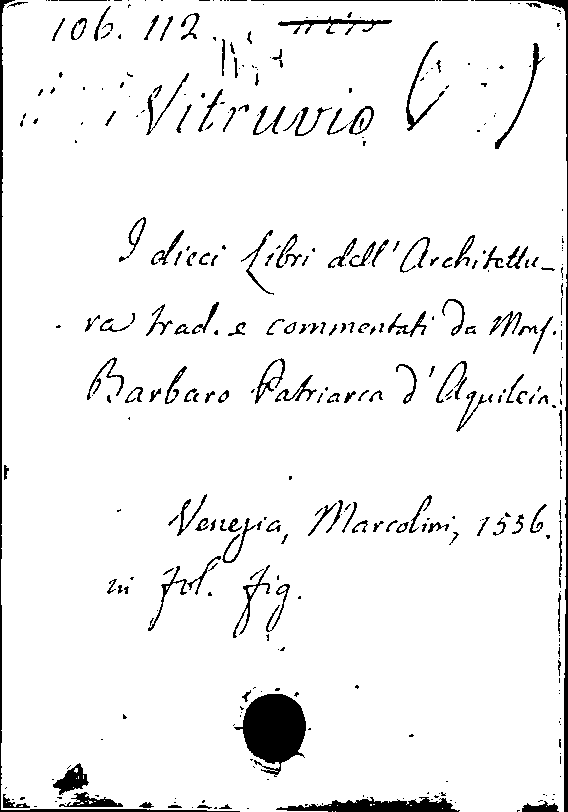 106. 112.
Vitruvio ( )
I dieci Libri dell' Architettu-
ra trad. e commentati da Mons.
Barbaro Patriarca d'Aquileia.
Venezia, Marcolini, 1556.
in fol. fig.